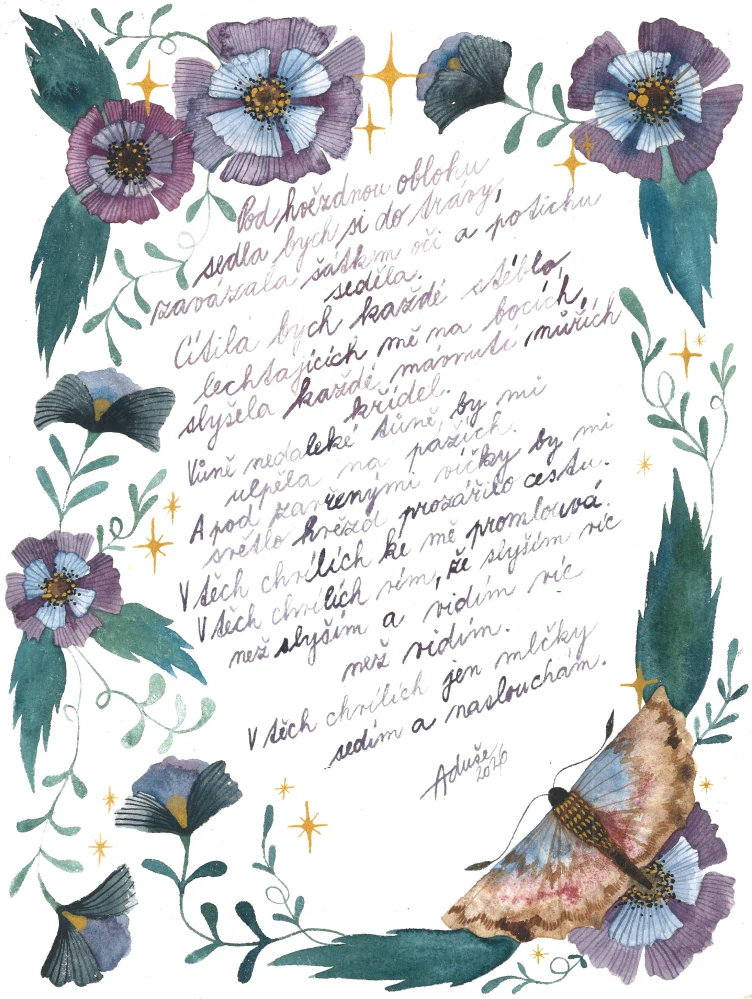 Pod hvězdnou oblohu
sedla bych si do trávy,
zavázala šátkem oči a potichu
seděla.
Cítila bych každé stéblo,
lechtajících mě na bocích,
slyšela každé mávnutí můřích
křídel.
Vůně nedaleké tůně by mi
ulpěla na pažích.
A pod zavřenými víčky by mi
světlo hvězd prozářilo cestu.
V těch chvílích ke mě promlouvá.
V těch chvílích vím, že slyším víc
než slyším a vidím víc
než vidím.
V těch chvílích jen mlčky
sedím a naslouchám.
Aduše
2026